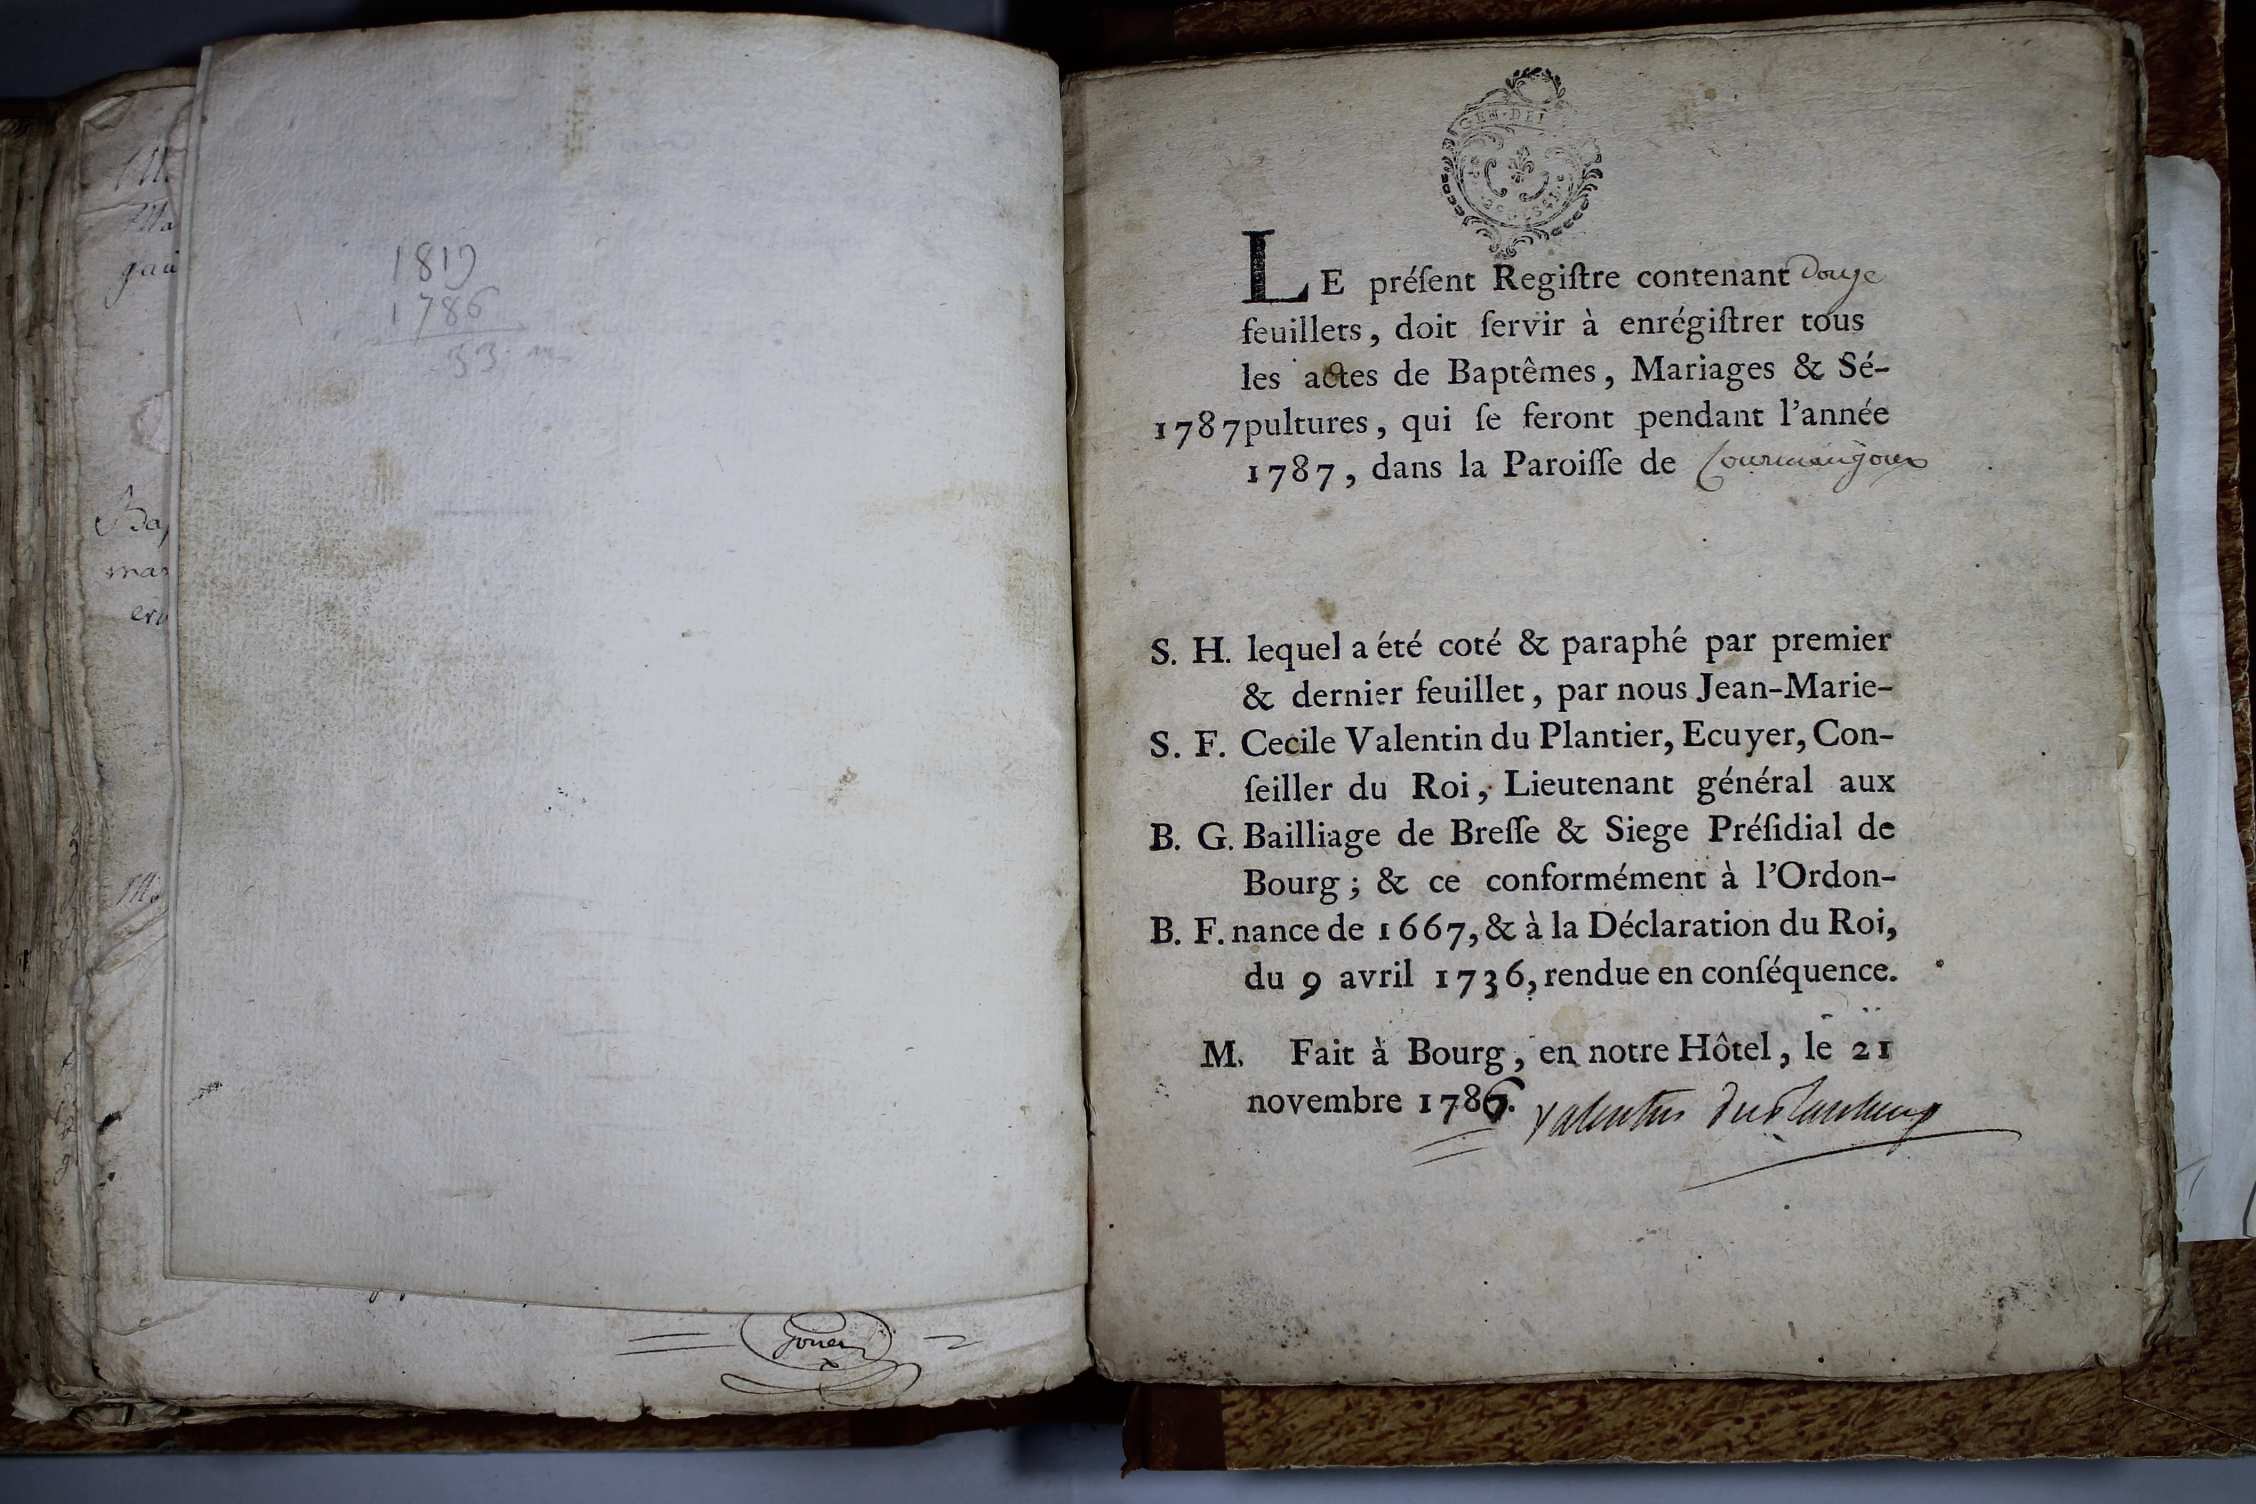 1819
1786
33
Gouer
GEN. DE
LE préſent Regiſtre contenant Douze
feuillets, doit ſervir à enrégiſtrer tous
les actes de Baptêmes, Mariages & Sé-
1787 pultures, qui ſe feront pendant l'année
1787, dans la Paroiſſe de Courmangoux
S. H. lequel a été coté & paraphé par premier
& dernier feuillet, par nous Jean-Marie-
S. F. Cecile Valentin du Plantier, Ecuyer, Con-
ſeiller du Roi, Lieutenant général aux
B. G. Bailliage de Breſſe & Siege Préſidial de
Bourg; & ce conformément à l'Ordon-
B. F. nance de 1667, & à la Déclaration du Roi,
du 9 avril 1736, rendue en conſéquence.
M. Fait à Bourg, en notre Hôtel, le 21
novembre 1786. Valentin Duplantier